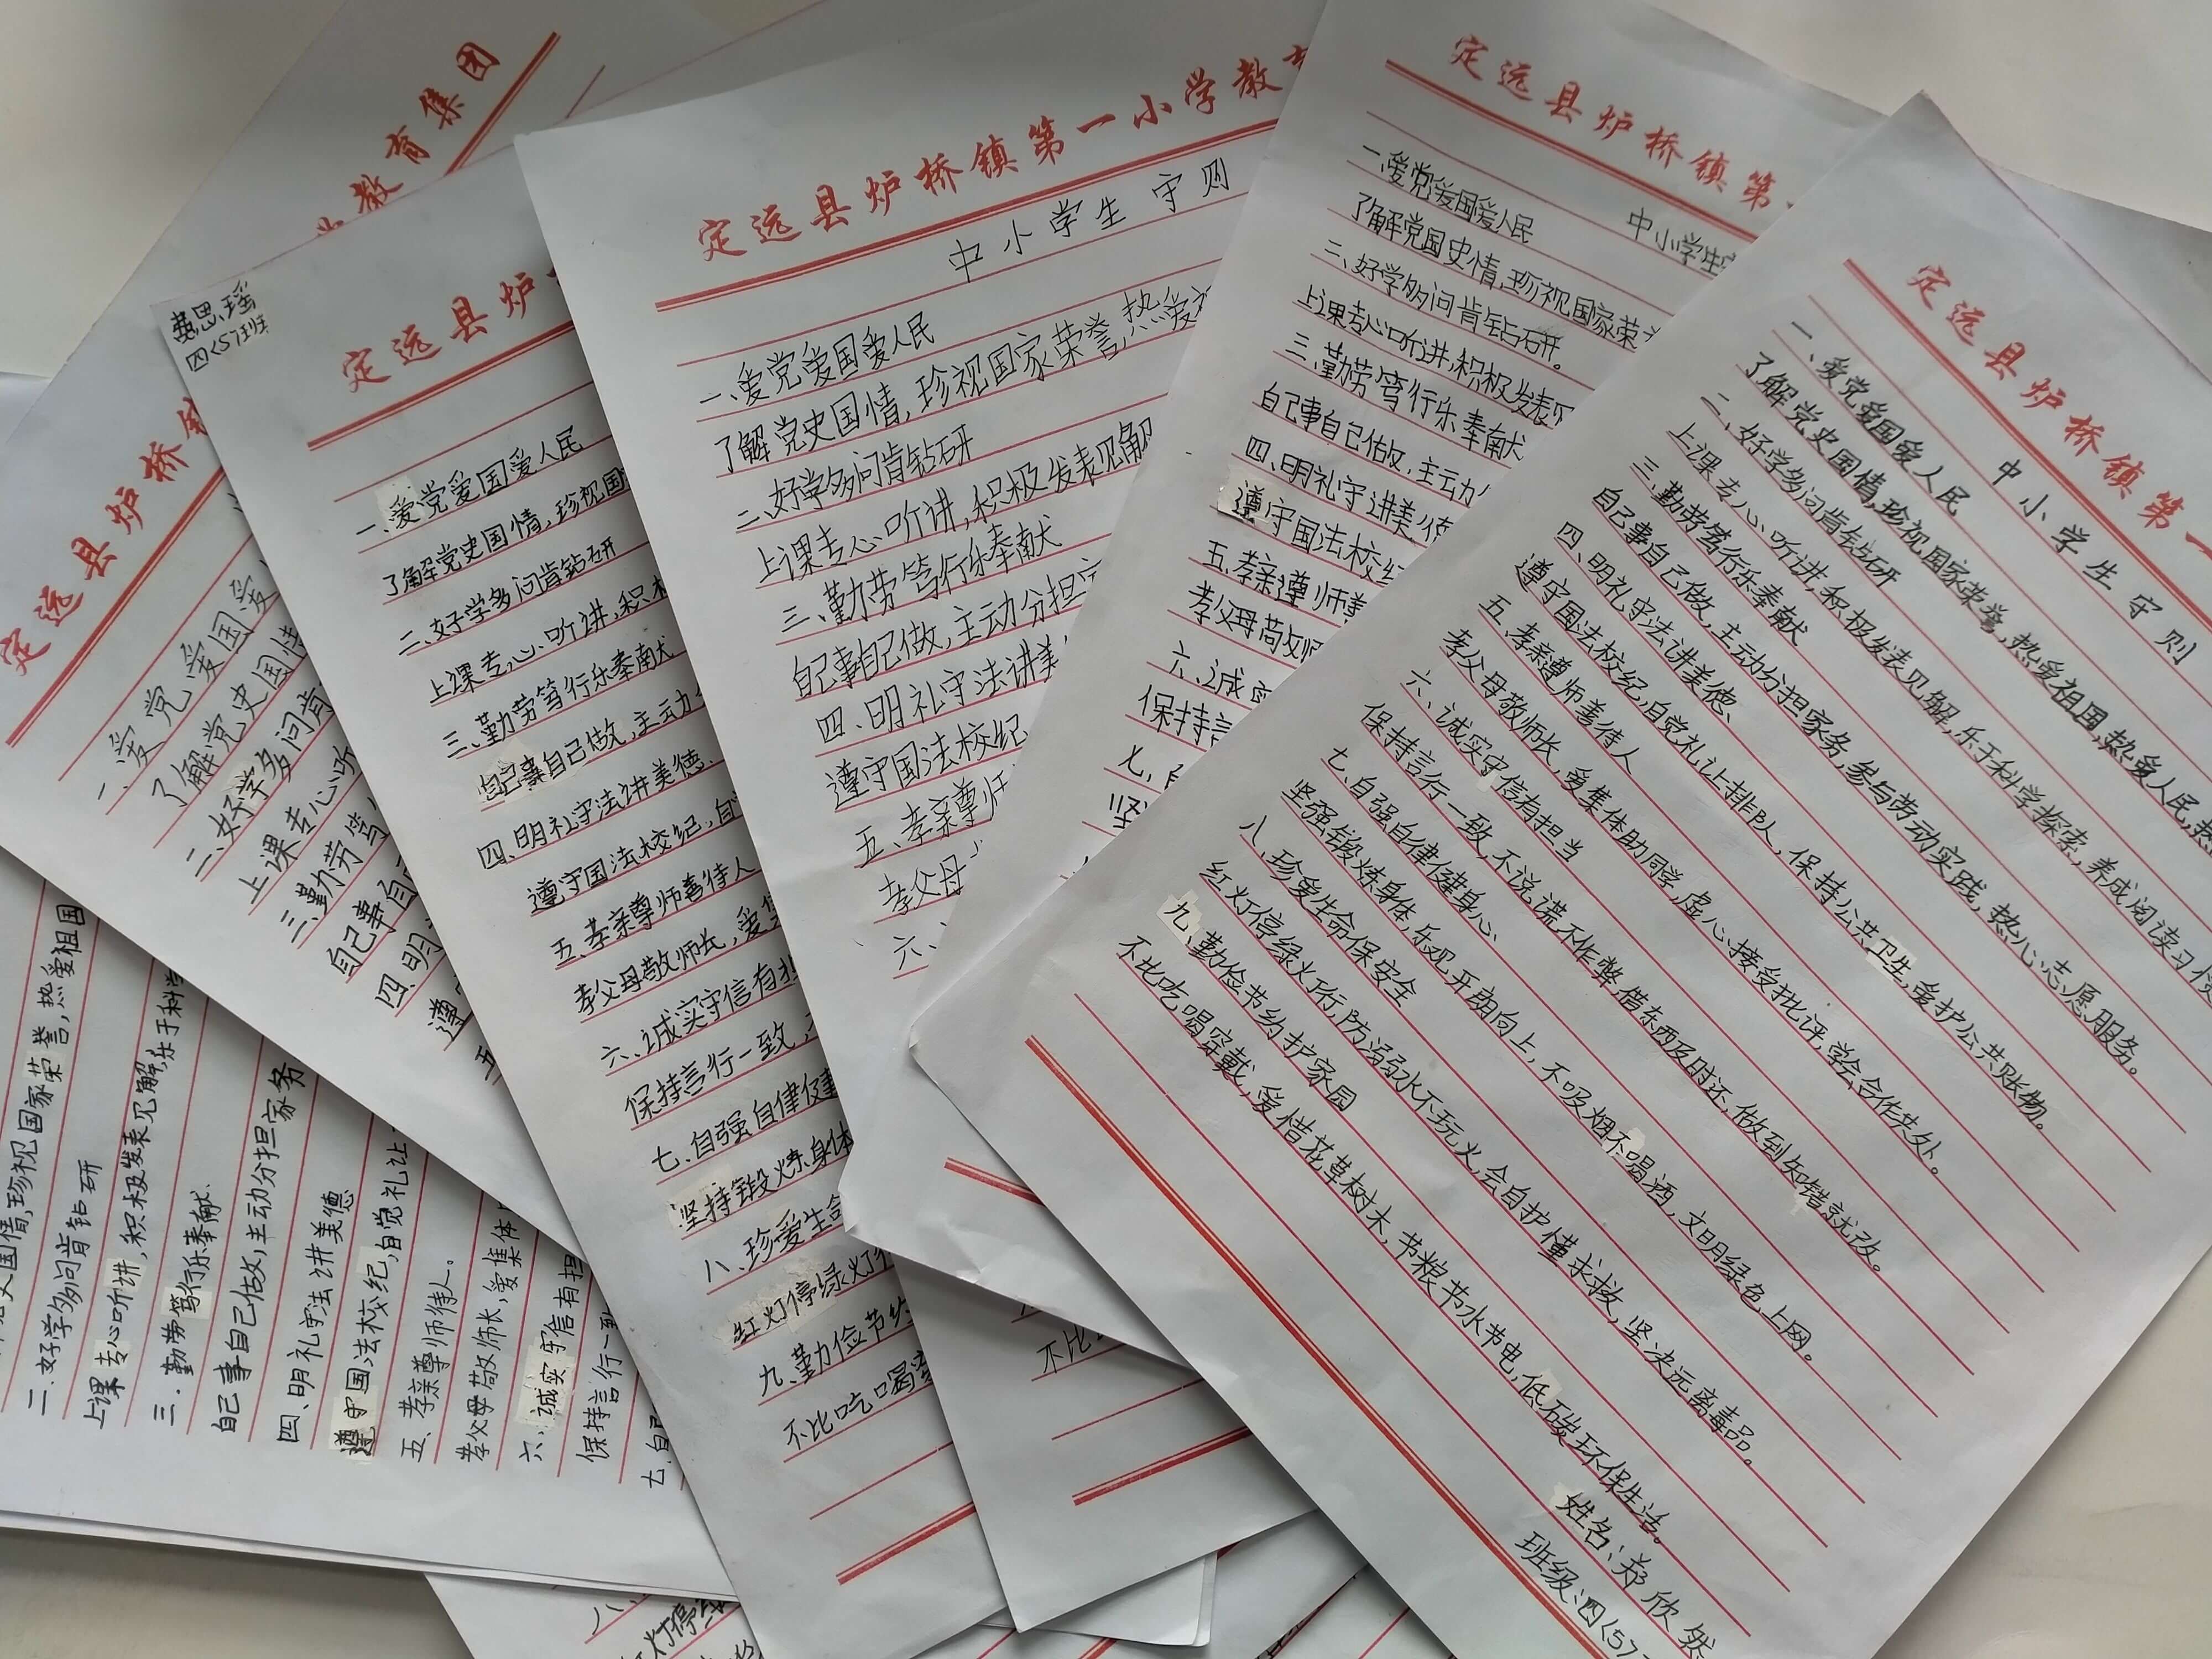 教育集团
定远县炉桥
一、爱党爱国爱
了解党史国情
二、好学多问肯
上课专心听
三、勤劳笃
自己事自
四、明
遵
五
国情,珍视国家荣誉,热爱祖国
二、好学多问肯钻研
上课专心听讲,积极发表见解,乐于科学
三、勤劳笃行乐奉献、
自己事自己做,主动分担家务
四、明礼守法讲美德
遵守国法校纪,自觉礼让
五、孝亲尊师待人。
孝父母敬师长,爱集体
六、诚实守信有担
保持言行一致
七、自
思瑶
四(5)班
定远县炉
一、爱党爱国爱人民
了解党史国情,珍视国
二、好学多问肯钻研
上课专心听讲,积
三、勤劳笃行乐奉献
自己事自己做,主动
四、明礼守法讲美德、
遵守国法校纪,自
五、孝亲尊师善待人
孝父母敬师长,爱
六、诚实守信有担
保持言行一致,
七、自强自律健
坚持锻炼身体
八、珍爱生命
红灯停绿灯行
九、勤俭节约
不比吃喝穿
定远县炉桥镇第一小学教
中小学生守则
一、爱党爱国爱人民
了解党史国情,珍视国家荣誉,热爱祖
二、好学多问肯钻研
上课专心听讲,积极发表见解
三、勤劳笃行乐奉献
自己事自己做,主动分担
四、明礼守法讲美
遵守国法校纪
五、孝亲尊师
孝父母
六、
定远县炉桥镇第
中小学生
一、爱党爱国爱人民
了解党国史情,珍视国家荣
二、好学多问肯钻研。
上课专心听讲,积极发表见
三、勤劳笃行乐奉献
自己事自己做,主动
四、明礼守讲美
遵守国法校纪
五、孝亲遵师善
孝父母敬师
六、诚
保持言
坚
定远县炉桥镇第一
中小学生守则
一、爱党爱国爱人民
了解党史国情,珍视国家荣誉,热爱祖国,热爱人民,热
二、好学多问肯钻研
上课专心听讲,积极发表见解,乐于科学探索,养成阅读习惯
三、勤劳笃行乐奉献
自己事自己做,主动分担家务,参与劳动实践,热心志愿服务。
四、明礼守法讲美德、
遵守国法校纪,自觉礼让排队,保持公共卫生,爱护公共财物。
五、孝亲尊师善待人
孝父母敬师长,爱集体助同学,虚心接受批评,学会合作共处。
六、诚实守信有担当
保持言行一致,不说谎不作弊,借东西及时还,做到知错就改。
七、自强自律健身心、
坚强锻炼身体,乐观开朗向上,不吸烟不喝酒,文明绿色上网。
八、珍爱生命保安全
红灯停绿灯行,防溺水不玩火,会自护懂求救,坚决远离毒品。
九、勤俭节约护家园
不比吃喝穿戴,爱惜花草树木,节粮节水节电,低碳环保生活。
姓名:郑欣然
班级:四(5)
不比
八、
红灯停